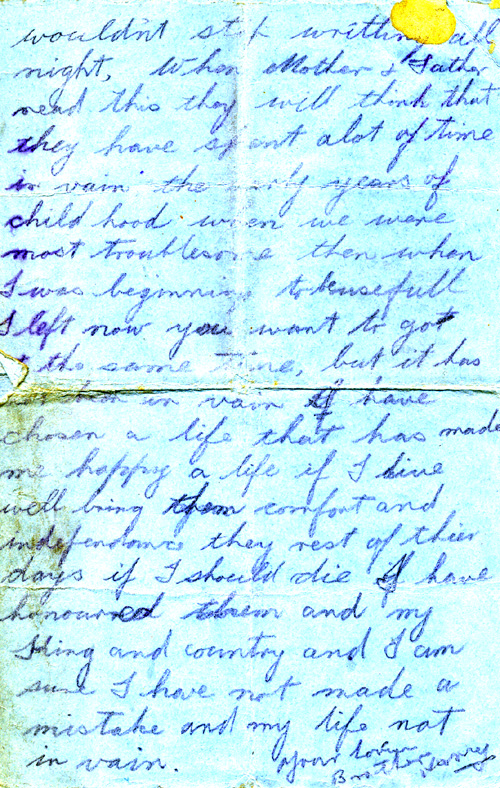 wouldn't stop writting all
night, When Mother & Father
read this they will think that
they have spent alot of time
in vain the early years of
child hood when we were
most troublesome then when
I was beginning to be usefull
I left now you want to got
the same time, but it has
in vain If have
chosen a life that has made
me happy a life if I live
well bring them comfort and
independance they rest of thier
days if I should die If have
honoured them and my
King and country and I am
sure I have not made a
mistake and my life not
in vain.
Your Lovin
Brother